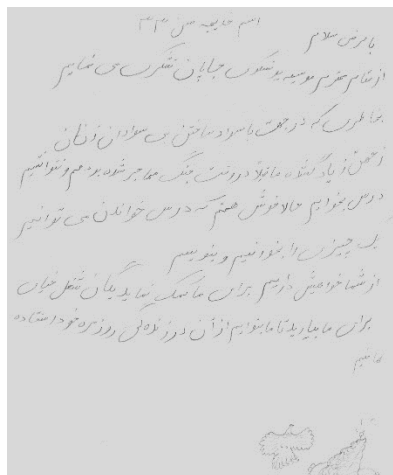 اسم خدیجه سن ۳۳
با عرض سلام
از مقام محترم موسسه یونسکوی جاپان تشکری می نمایم
بخاطری که در جهت باسواد ساختن بی سوادان زنان
از جهل از یاد گشتاند ما قبلاً در وقت جنگ مهاجر شده بودیم و نتوانستیم
درس بخوانیم حالا خوش هستم که درس خواندن می توانیم
یک چیزی را بخوانیم و بنویسم
از شما خواهش داریم برای ما کمک نماید یگان شغل
برای ما بیارید تا ما بتوانیم از آن در زندگی روزمره خود استفاده
نمائیم